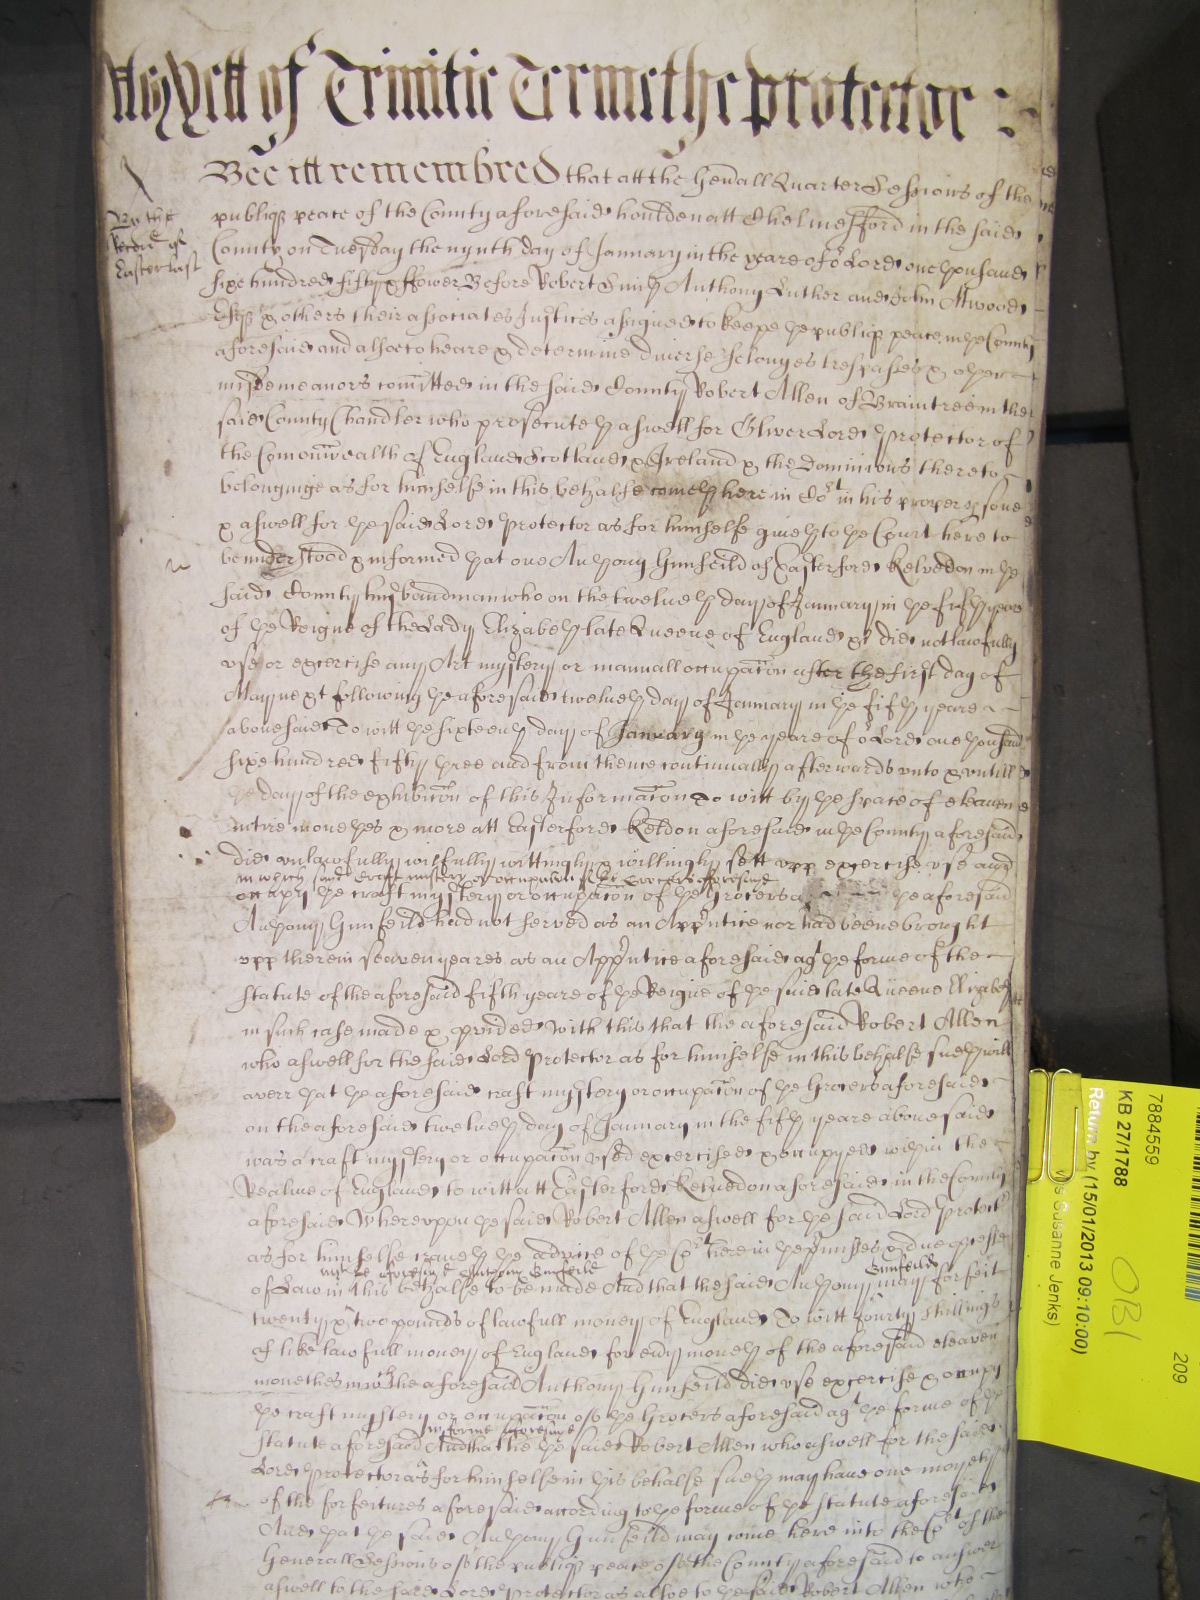 as yett of Trinitie Terme the protector
By the
Record of
Easter last
Bee itt remembred that att the Genall Quarter Sessions of the
publiq peace of the County aforesaid houlden att Chelmesfford in the said
County on Tuesday the nynth day of January in the yeare of or Lord one thousand
sixe hundred fifty & ffower Before Robert Smith Anthony Luther and John Attwood
Esqs & others their associates Justices assigned to keepe the publiq peace in the County
aforesaid and alsoe to heare & determine diverse felonyes trespasses & other
misdemeanors comitted in the said County Robert Allen of Braintree in the
said County Chandler who prosecuteth aswell for Oliver Lord Protector of
the Comonwealth of England Scotland & Ireland & the Dominions thereto
belonginge as for himselfe in this behalfe cometh here in Cort in his proper psone
& aswell for the said Lord Protector as for himselfe giveth to the Court here to
be understood & informed that one Anthony Gunfeild of Easterford Kelvedon in the
said County husbandman who on the twelueth day of January in the fifth yeare
of the Reigne of the Lady Elizabeth late Queene of England &c did not lawfully
vse or exercise any Art mystery or manuall occupacon after the first day of
May next following the aforesaid twelueth day of January in the fifth yeare
abouesaid To witt the sixteenth day of January in the yeare of or Lord one thousand
sixe hundred fifty three and from thence continually afterwards vnto & vntill
the day of the exhibicon of this Informacon To witt by the space of eleaven
intire monethes & more att Easterford Keldon aforesaid in the County aforesaid
did vnlawfully wilfully wittingly & willingly sett vpp exercise vse and
in which said craft mistery or occupation of the Grocers aforesaid
occupy the craft mystery or occupacon of the Grocers the aforesaid
Anthony Gunfeild had not served as an Apprntice nor had beene brought
vpp therein seaven yeares as an Apprntice aforesaid agt the forme of the
statute of the aforesaid fifth yeare of the Reigne of the said late Queene Elizabeth
in such case made & pvided With this that the aforesaid Robert Allen
who aswell for the said Lord Protector as for himselfe in this behalfe sueth will
averr that the aforesaid craft mystery or occupacon of the Grocers aforesaid
on the aforesaid twelueth day of January in the fifth yeare abouesaid
was a craft mystery or occupacon vsed exercised & occupyed within the
Realme of England to witt att Easterford Kelvedon aforesaid in the County
aforesaid Wherevppon the said Robert Allen aswell for the said Lord Protector
as for himselfe craveth the advice of the Cort here in the prmisses & due processe
against the aforesaid Anthony Gunfeild Gunfeild
of Law in this behalfe to be made And that the said Anthony may forfeit
twenty & two pounds of lawfull money of England To witt fourty shillings
of like lawfull money of England for euy moneth of the aforesaid eleaven
monethes in wch the aforesaid Anthony Gunfeild did vse exercise & occupy
the craft mystery or occupacon of the Grocers aforesaid agt the forme of the
in forme aforesaid
statute aforesaid And that the said Robert Allen who aswell for the said
Lord Protector as for himselfe in this behalfe sueth may haue one moyety
of the forfeitures aforesaid according to the forme of the statute aforesaid
And that the said Anthony Gunfeild may come here into the Cort of the
Generall Sessions of the publiq peace of the County aforesaid to answer
aswell to the said Lord Protector as alsoe to the said Robert Allen who
7884559
KB 27/1788
Return by (15/01/2013 09:10:00)
s Susanne Jenks)
OBI
209